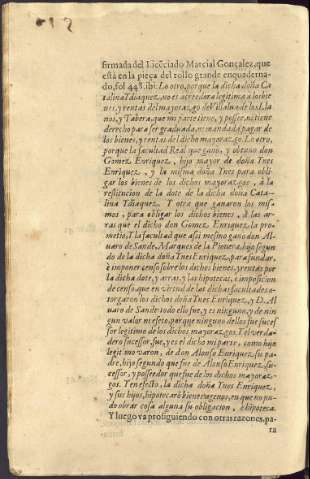 firmada del Licẽciado Marcial Gonçalez, que
està en la pieça del rollo grande enquaderna-
do, fol. 448. ibi: Lo otro, porque la dicha doña Ca
talina Ydiaquez, no es acreedora legitima a los bie
nes, y rentas del mayorazgo de Villalua de los Lla
nos, y Tabera, que mi parte tiene, y possee, ni tiene
derecho para ser graduada, ni mandada pagar de
los bienes, y rentas del dicho mayorazgo. Lo otro,
porque la facultad Real que gano, y obtuuo don
Gomez Enriquez, hijo mayor de doña Ynes
Enriquez, y la misma doña Ynes para obli-
gar los bienes de los dichos mayorazgos, à la
restitucion de la dote de la dicha doña Cata-
lina Ydiaquez. Y otra que ganaron los mis-
mos, para obligar los dichos bienes, à las ar-
ras que el dicho don Gomez Enriquez, la pro-
metio. Y la facultad que assi mesmo gano don Al-
uaro de Sande, Marques de la Piouera, hijo segun
do de la dicha doña Ynes Enriquez, para fundar,
è imponer censo sobre los dichos bienes, y rentas por
la dicha dote, y arras, y las hipotecas, e imposicion
de censo que en virtud de las dichas facultades o-
torgaron los dichos doña Ynes Enriquez, y D. Al
uaro de Sande todo ello fue, y es ninguno, y de nin
gun valor ni efeto, porque ninguno dellos fue sucef
sor legitimo de los dichos mayorazgos. Y el verda-
dero sucessor, fue, y es el dicho mi parte, como hijo
legitimo varon, de don Alonso Enriquez su pa-
dre, hijo segundo que fue de Alonso Enriquez, su-
cessor, y posseedor que fue de los dichos mayoraz-
gos. Y en efecto, la dicha doña Ynes Enriquez,
y sus hijos, hipotecarõ bienes agenos, en que no pu-
do obrar cosa alguna su obligacion, è hipoteca.
Y luego va prosiguiendo con otras razones, pa-
ra